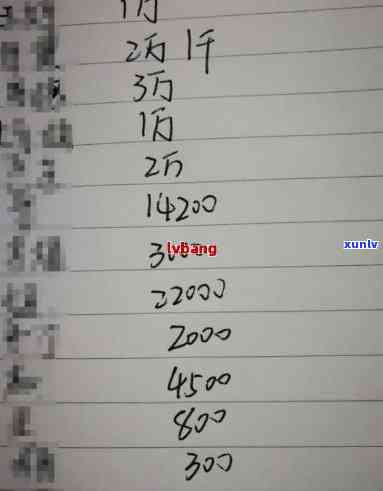 1万
2万1千
3万
1万
2万
14200
3000
lvbang
xunlv
22000
2000
4500
800
300